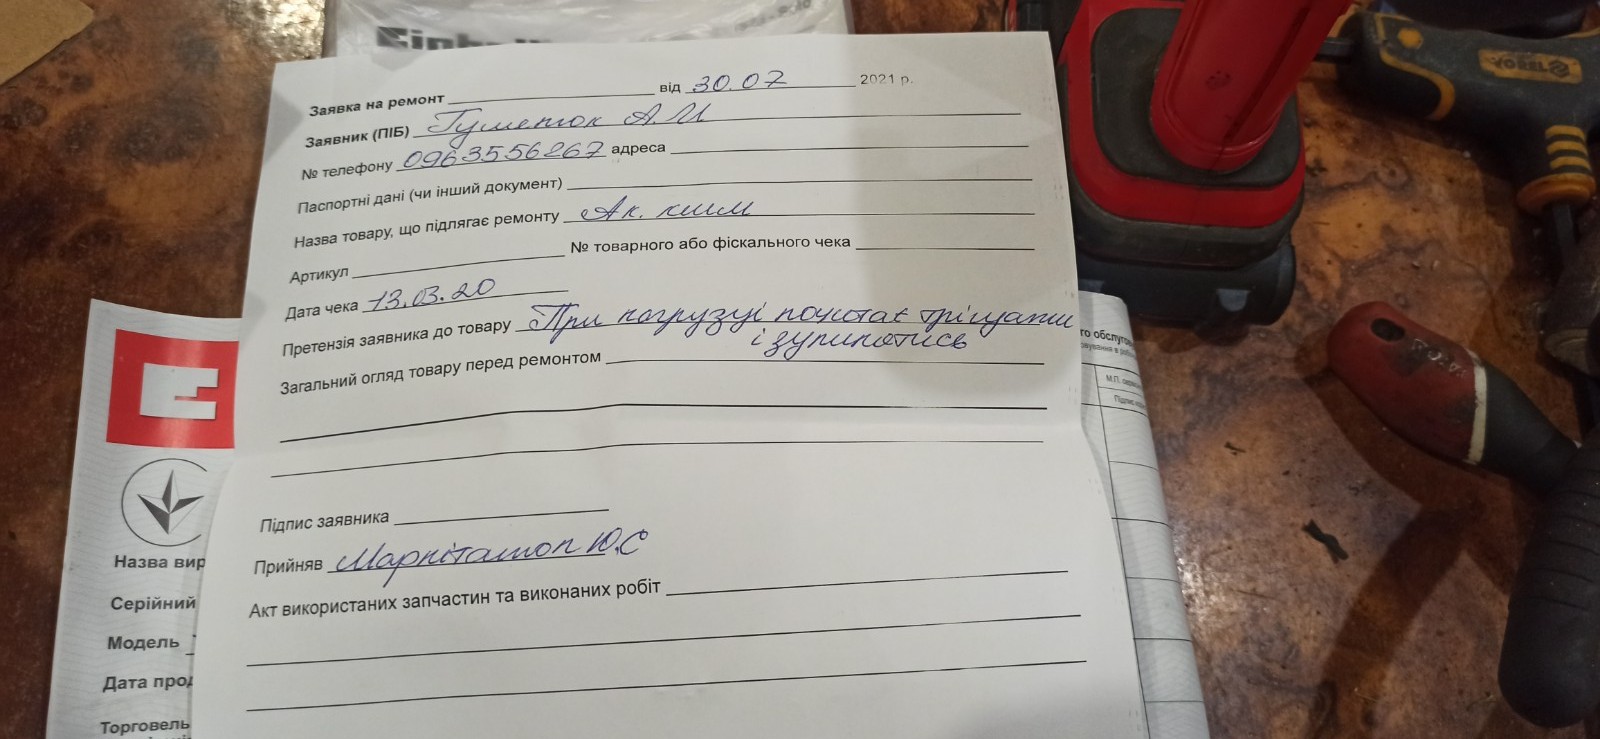 Einhell
Заявка на ремонт від 30.07 2021 р.
Заявник (ПІБ) Гуменюк А.И
№ телефону 0963556267 адреса
Паспортні дані (чи інший документ)
Назва товару, що підлягає ремонту Ак. кшм
Артикул № товарного або фіскального чека
Дата чека 13.03.20
Претензія заявника до товару При нагрузці почотає тріщати
і зупинятись
Загальний огляд товару перед ремонтом
Підпис заявника
Прийняв Ю.С
Акт використаних запчастин та виконаних робіт
Назва вир
Серійний
Модель
Дата прод
Торговель
го обслугов
М.П.
VOREL